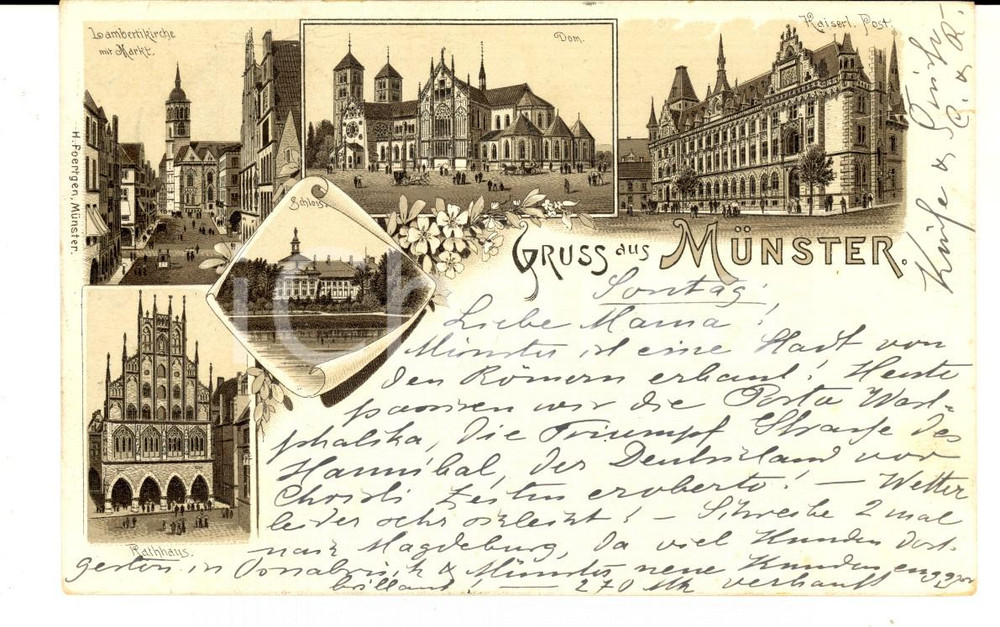 Lambertikirche
mit Markt.
Dom.
Kaiserl. Post.
H. Poertgen, Münster.
Schloss.
Rathhaus.
GRUSS aus MÜNSTER.
Sontag!
Liebe Mama!
Münster ist eine Stadt von
den Römern erbaut! Heute
passiren wir die Porta West-
phalika, die Triumpf Straße des
Hannibal, der Deutschland vor
Christi Zeiten eroberte! — Wetter
leider sehr schlecht! — Schreibe 2 mal
nach Magdeburg, da viel Kunden dort.
gestern in Osnabrück & Münster neue Kunden
brillant! — 270 Mk verkauft
Küsse & Grüße